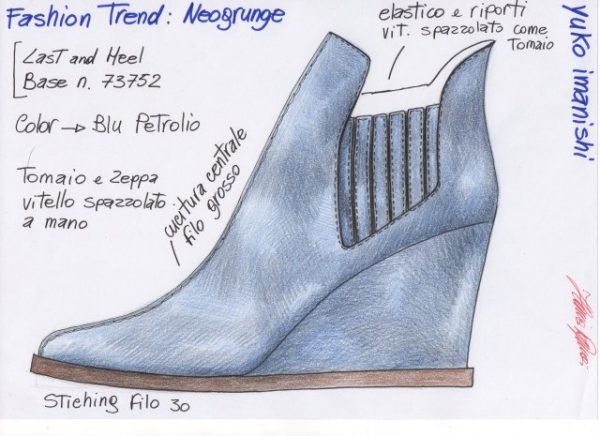 Fashion Trend: Neogrunge
Last and Heel
Base n. 73752
Color → Blu Petrolio
Tomaio e zeppa
vitello spazzolato
a mano
cucitura centrale
filo grosso
elastico e riporti
vit. spazzolato come
Tomaio
yuko imanishi
Stiching Filo 30